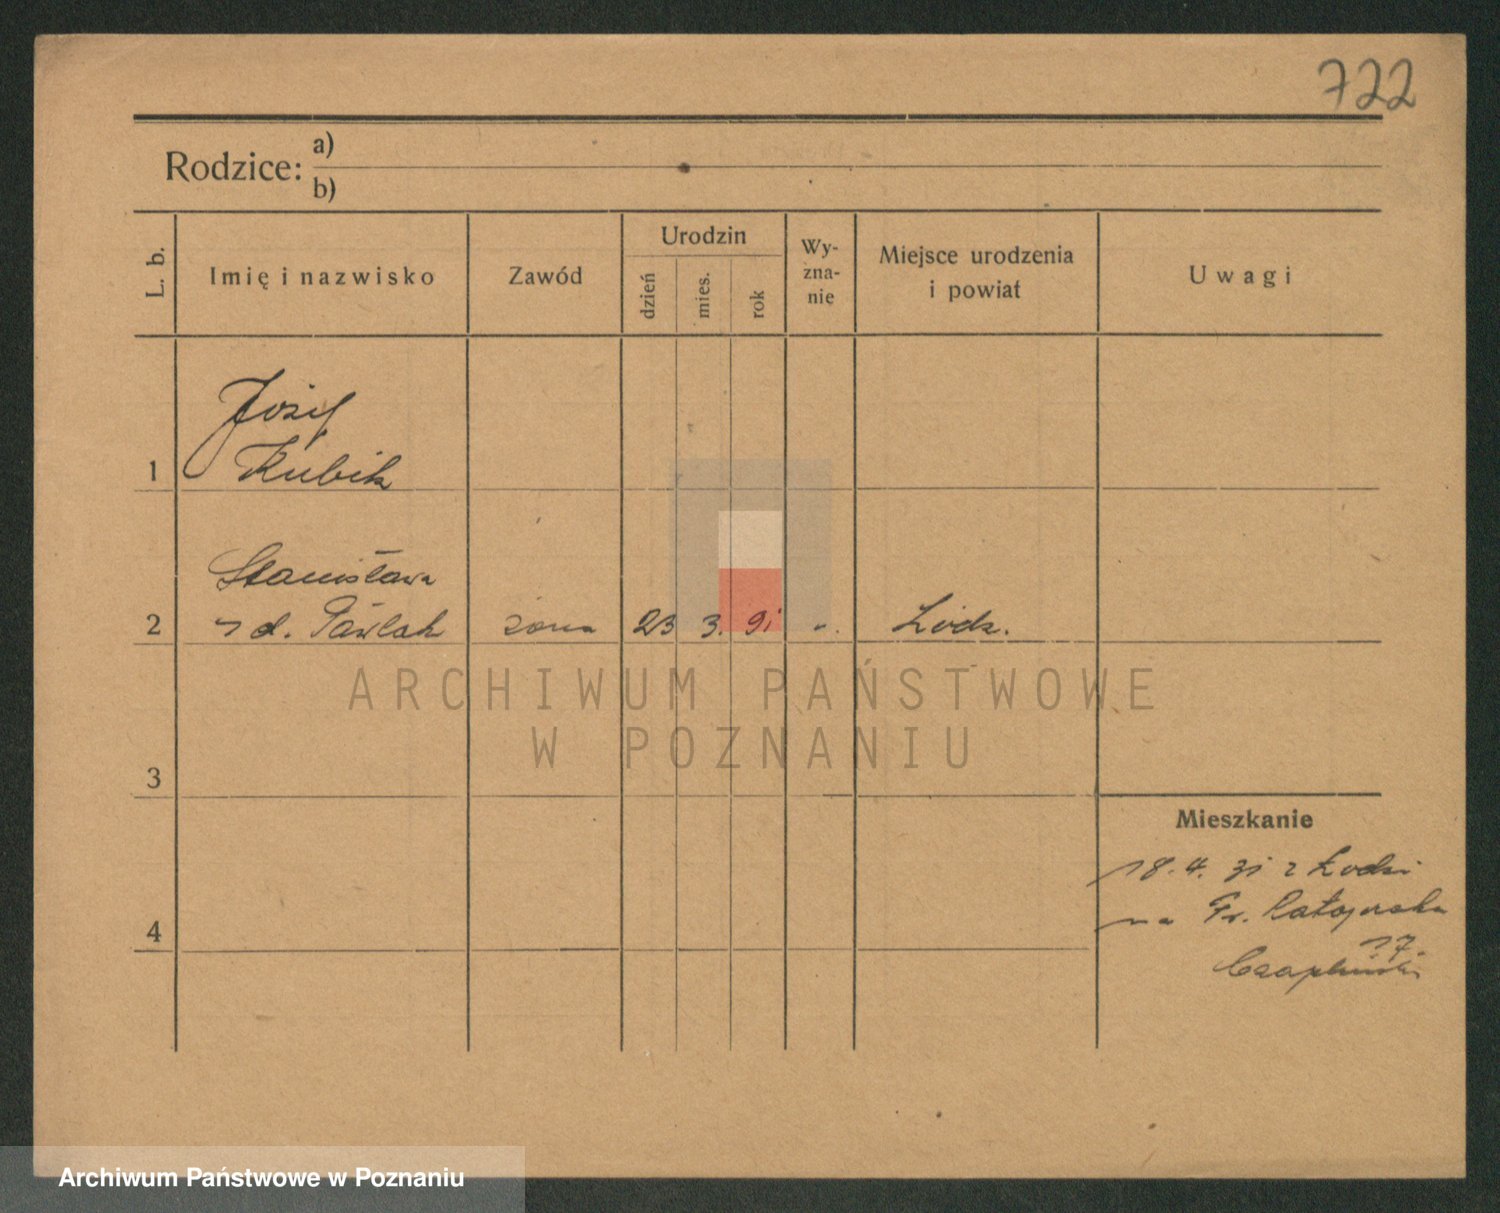 722
Rodzice: a)
b)
L. b.
Imię i nazwisko
Zawód
Urodzin
dzień
mies.
rok
Wy-
zna-
nie
Miejsce urodzenia
i powiat
Uwagi
1
Józef
Kubik
2
Stanisława
z d. Pawlak
żona
23
3.
91
".
Łódz.
ARCHIWUM PAŃSTWOWE
W POZNANIU
3
Mieszkanie
18.4. 31 z Łodzi
na Fr. Ratajczaka
17.
Czapliński
4
Archiwum Państwowe w Poznaniu